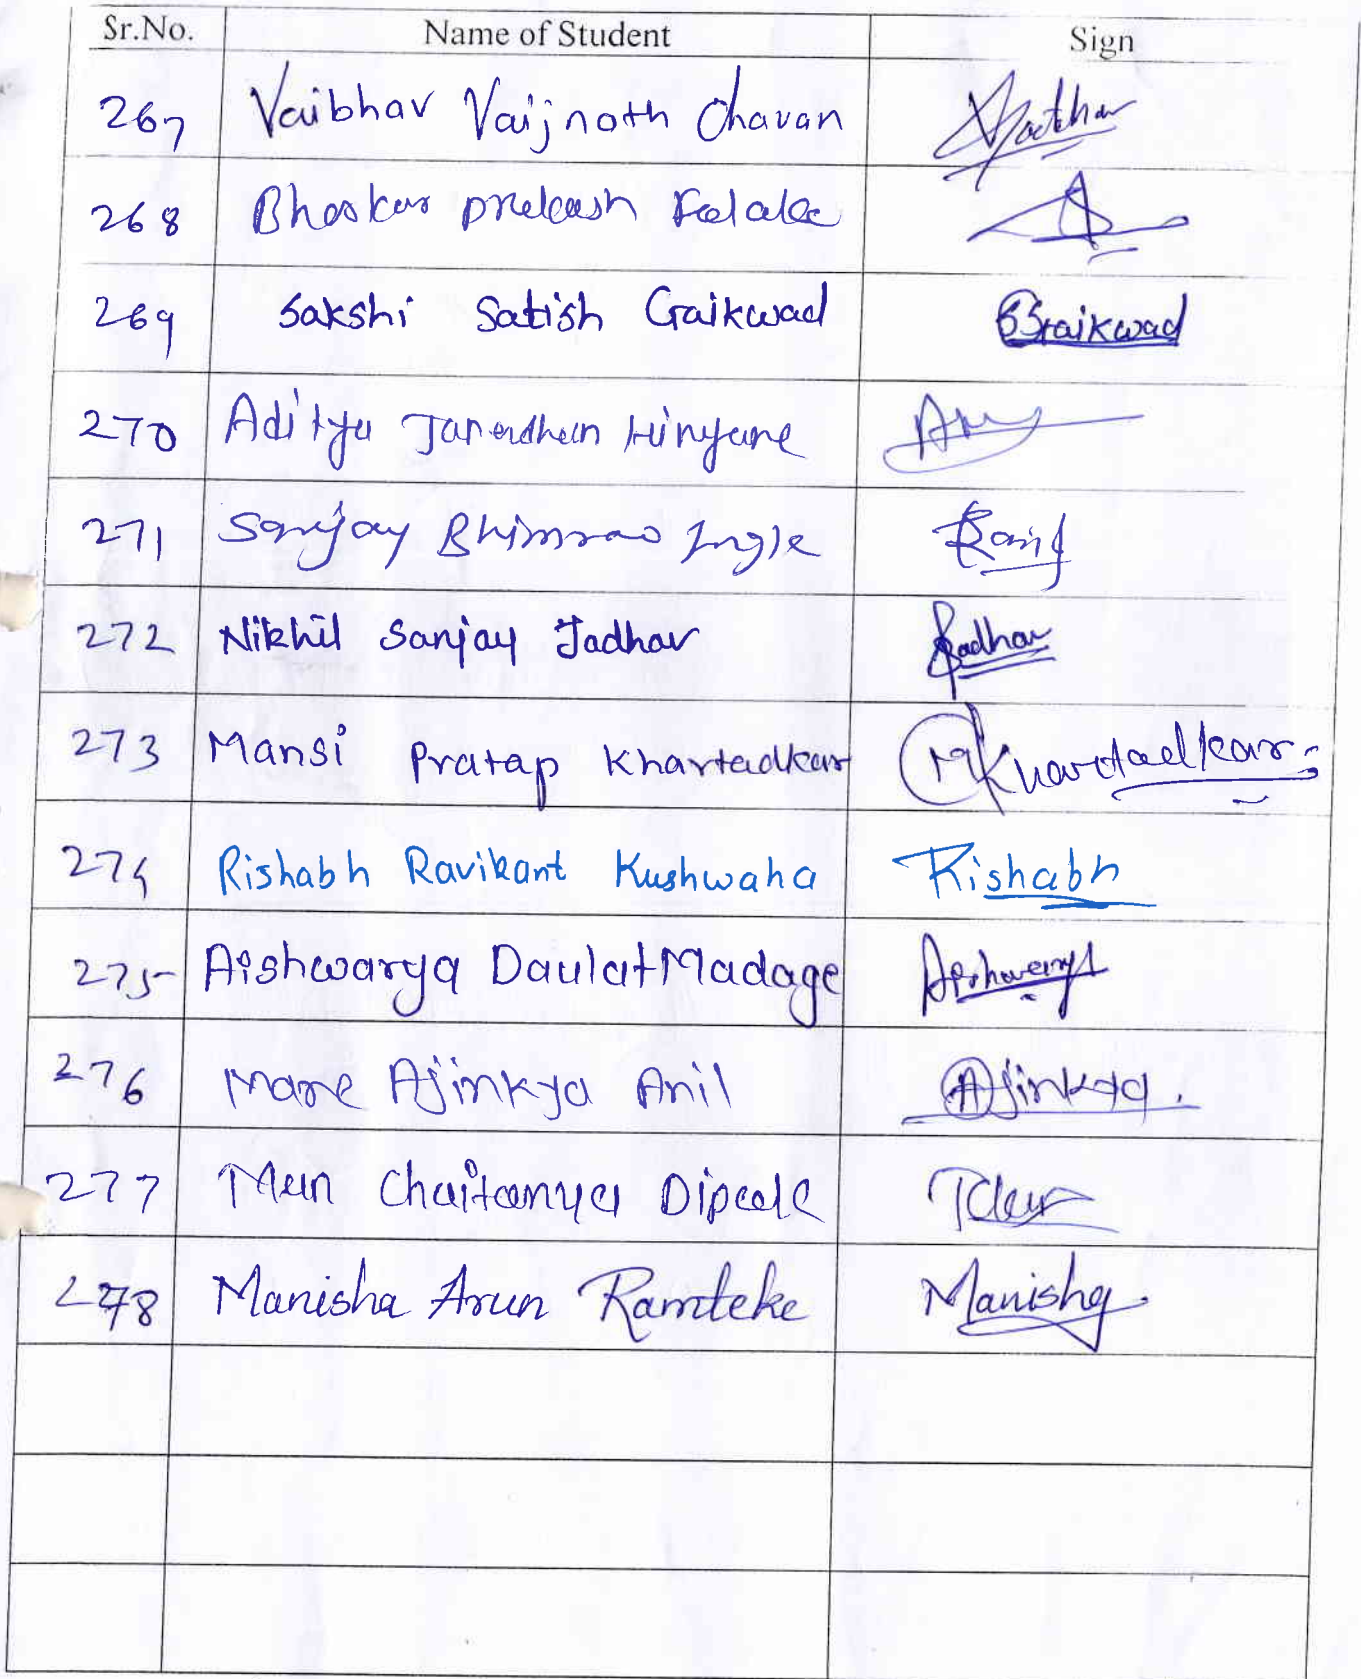 Sr.No. Name of Student Sign
267 Vaibhav Vaijnath Chavan
268 Bhaskar Prakash
269 Sakshi Satish Gaikwad SGaikwad
270 Aditya Janardhan Hingane
271 Sanjay Bhimrao Ingle
272 Nikhil Sanjay Jadhav Jadhav
273 Mansi Pratap Khartadkar MKhartadkar
274 Rishabh Ravikant Kushwaha Rishabh
275 Aishwarya Daulat Madage Aishwarya
276 Mane Ajinkya Anil Ajinkya.
277 Chaitanya Dipak
278 Manisha Arun Ramteke Manisha